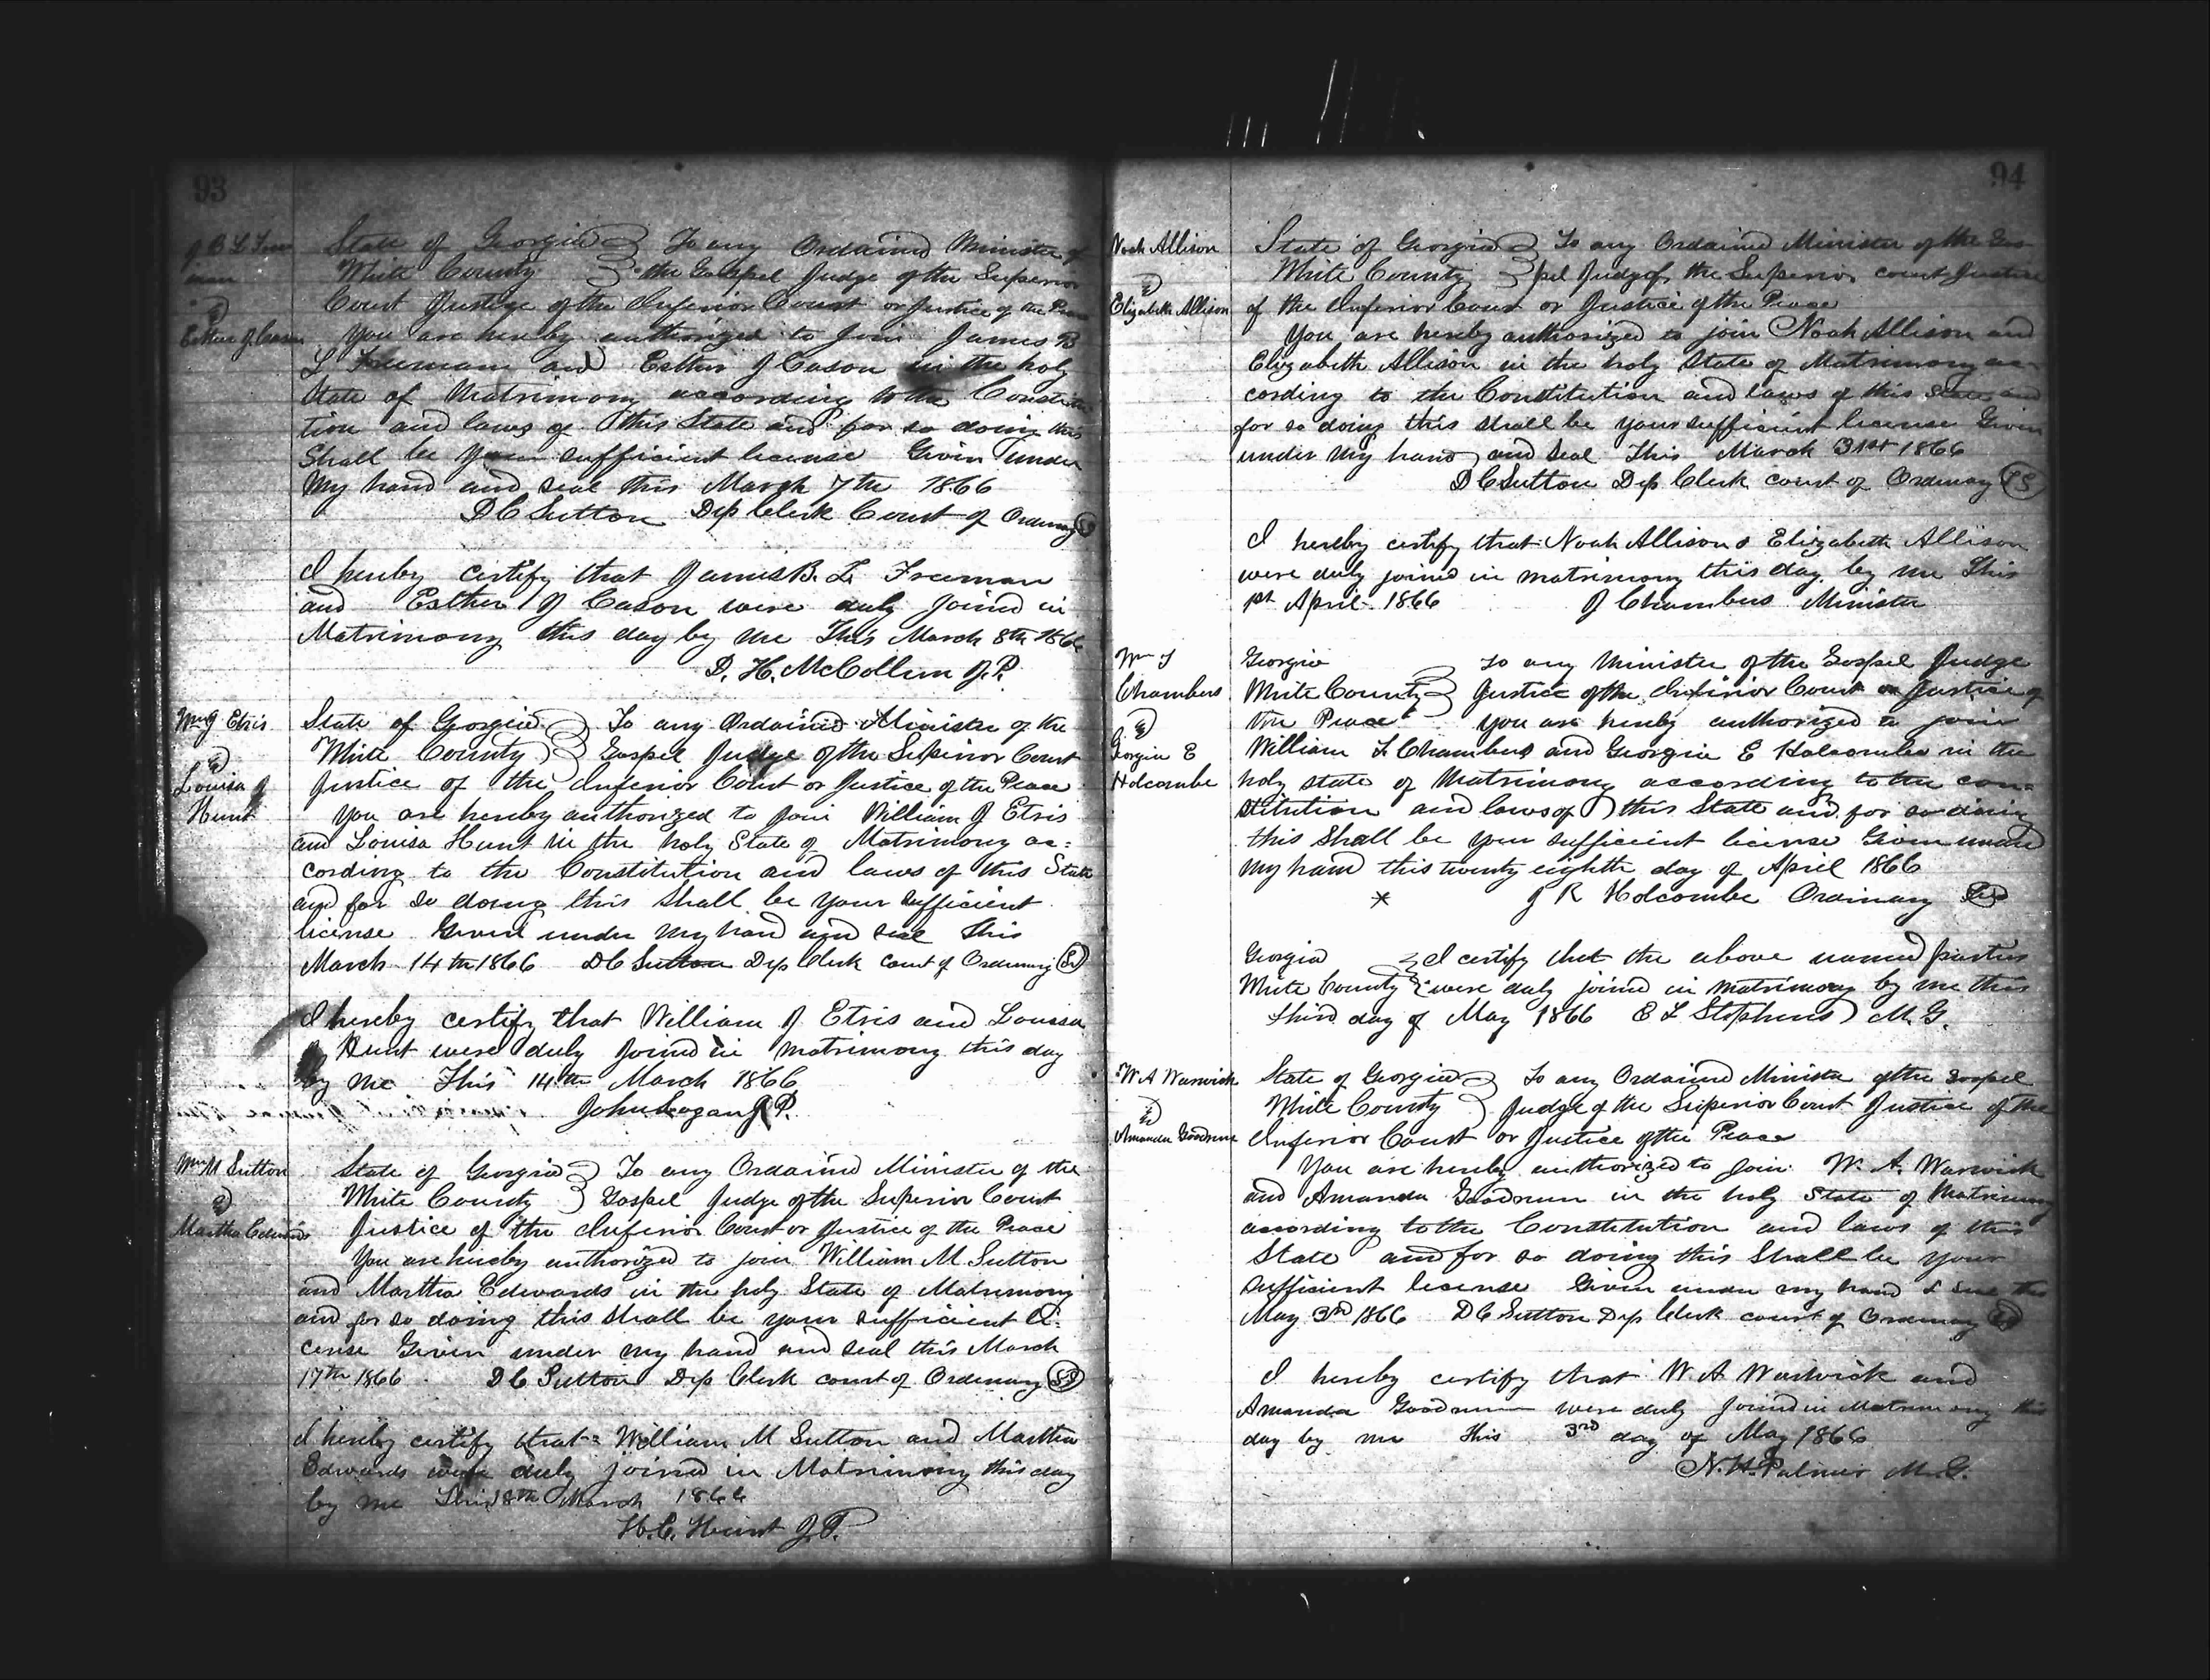 93
J B L Free
man
&
Esther J Cason
State of Georgia } To any Ordained Minister of
White County } the Gospel Judge of the Superior
Court Justice of the Inferior Court or Justice of the Peace
You are hereby authorized to Join James B
L Freeman and Esther J Cason in the holy
State of Matrimony according to the Constitu
tion and laws of this State and for so doing this
Shall be your sufficient license Given under
my hand and seal this March 7th 1866
D C Sutton Dep Clerk Court of Ordinary
I hereby certify that James B. L. Freeman
and Esther J Cason were duly Joined in
Matrimony this day by me This March 8th 1866
D. H. McCollum J.P.
Wm J Etris
&
Louisa J
Hunt
State of Georgia } To any Ordained Minister of the
White County } Gospel Judge of the Superior Court
Justice of the Inferior Court or Justice of the Peace
You are hereby authorized to Join William J Etris
and Louisa Hunt in the holy State of Matrimony ac=
cording to the Constitution and laws of this State
and for so doing this Shall be your sufficient
license Given under my hand and seal this
March 14th 1866 D C Sutton Dep Clerk court of Ordinary
I hereby certify that William J Etris and Louisa
J Hunt were duly Joined in matrimony this day
by me This 14th March 1866
John Logan J.P.
Wm M Sutton
&
Martha Edwards
State of Georgia } To any Ordained Minister of the
White County } Gospel Judge of the Superior Court
Justice of the Inferior Court or Justice of the Peace
You are hereby authorized to join William M Sutton
and Martha Edwards in the holy State of Matrimony
and for so doing this shall be your sufficient li-
cense Given under my hand and seal this March
17th 1866 D C Sutton Dep Clerk court of Ordinary
I hereby certify that William M Sutton and Martha
Edwards were duly joined in Matrimony this day
by me This 18th March 1866
H. C. Hunt J.P.
94
Noah Allison
&
Elizabeth Allison
State of Georgia } To any Ordained Minister of the Gos
White County } pel Judge of the Superior court Justice
of the Inferior Court or Justice of the Peace
You are hereby authorized to join Noah Allison and
Elizabeth Allison in the holy State of Matrimony ac
cording to the Constitution and laws of this State and
for so doing this shall be your sufficient license Given
under my hand and seal This March 31st 1866
D C Sutton Dep Clerk court of Ordinary LS
I hereby certify that Noah Allison & Elizabeth Allison
were duly joined in matrimony this day by me This
1st April 1866 J Chambers Minister
Chambers
&
Georgia E
Holcombe
Georgia To any Minister of the Gospel Judge
White County } Justice of the Inferior Court or Justice of
the Peace You are hereby authorized to join
William Chambers and Georgia E Holcombe in the
holy state of Matrimony according to the con=
stitution and laws of this State and for so doing
this shall be your sufficient license Given under
my hand this twenty eighth day of April 1866
* J R Holcombe Ordinary
Georgia } I certify that the above named parties
White County } were duly joined in matrimony by me this
third day of May 1866 E L Stephens M.G.
W A Warwick
&
Amanda Goodrum
State of Georgia } To any Ordained Minister of the Gospel
White County } Judge of the Superior Court Justice of the
Inferior Court or Justice of the Peace
You are hereby authorized to Join W. A. Warwick
and Amanda Goodrum in the holy State of Matrimony
according to the Constitution and laws of this
State and for so doing this Shall be your
sufficient license Given under my hand & seal this
May 3rd 1866 D C Sutton Dep Clerk court of Ordinary
I hereby certify that W. A Warwick and
Amanda Goodrum were duly Joined in Matrimony this
day by me this 3rd day of May 1866
N. H. Palmer M.G.